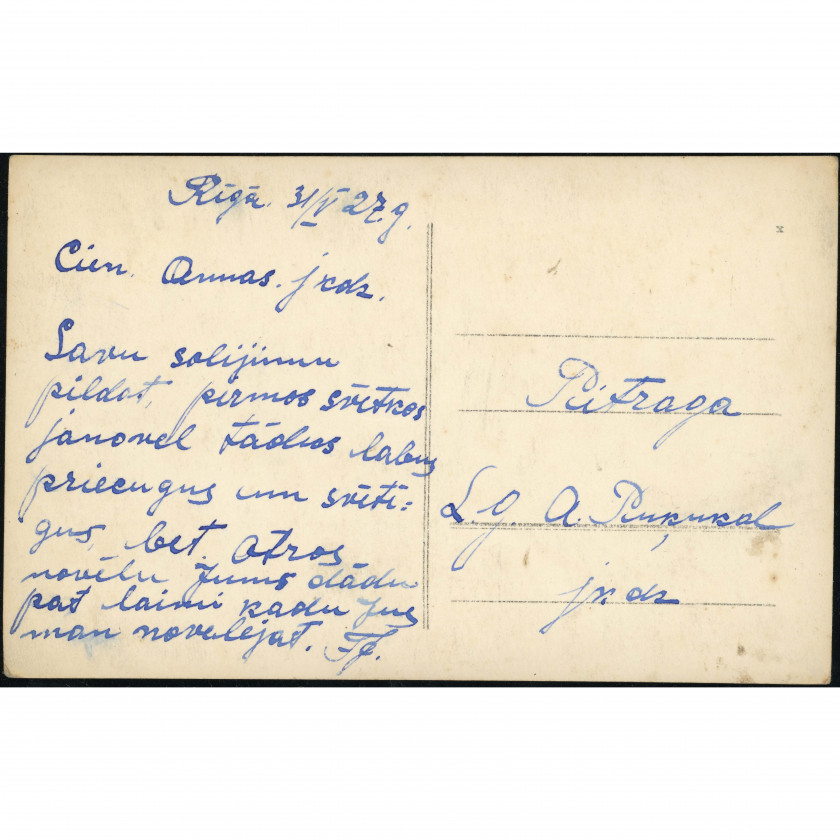 Rīgā. 31/V 27.g.
Cien. Annas. jkdz.
Savu solijumu
pildot, pirmos svētkos
janovel tādus labus
priecugus un svēti=
gus, bet. Otros
novēlu Jums dādu
pat laimi kadu Jus
man novelejat.
Pitraga
L. g. A.
jk. dz